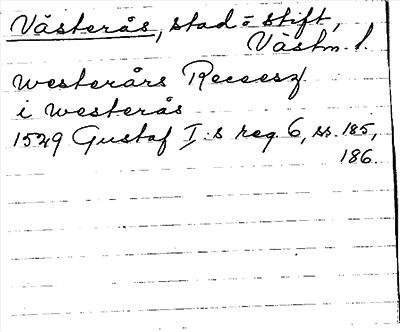 Västerås, stad o stift,
Västm. l.
Westerårs Recessz
i Westerås
1529 Gustaf I:s reg. 6, ss. 185,
186.